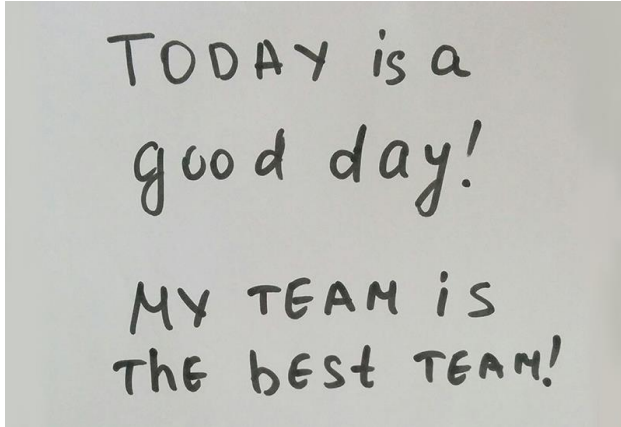 TODAY is a
good day!
MY TEAM iS
ThE bESt TEAM!